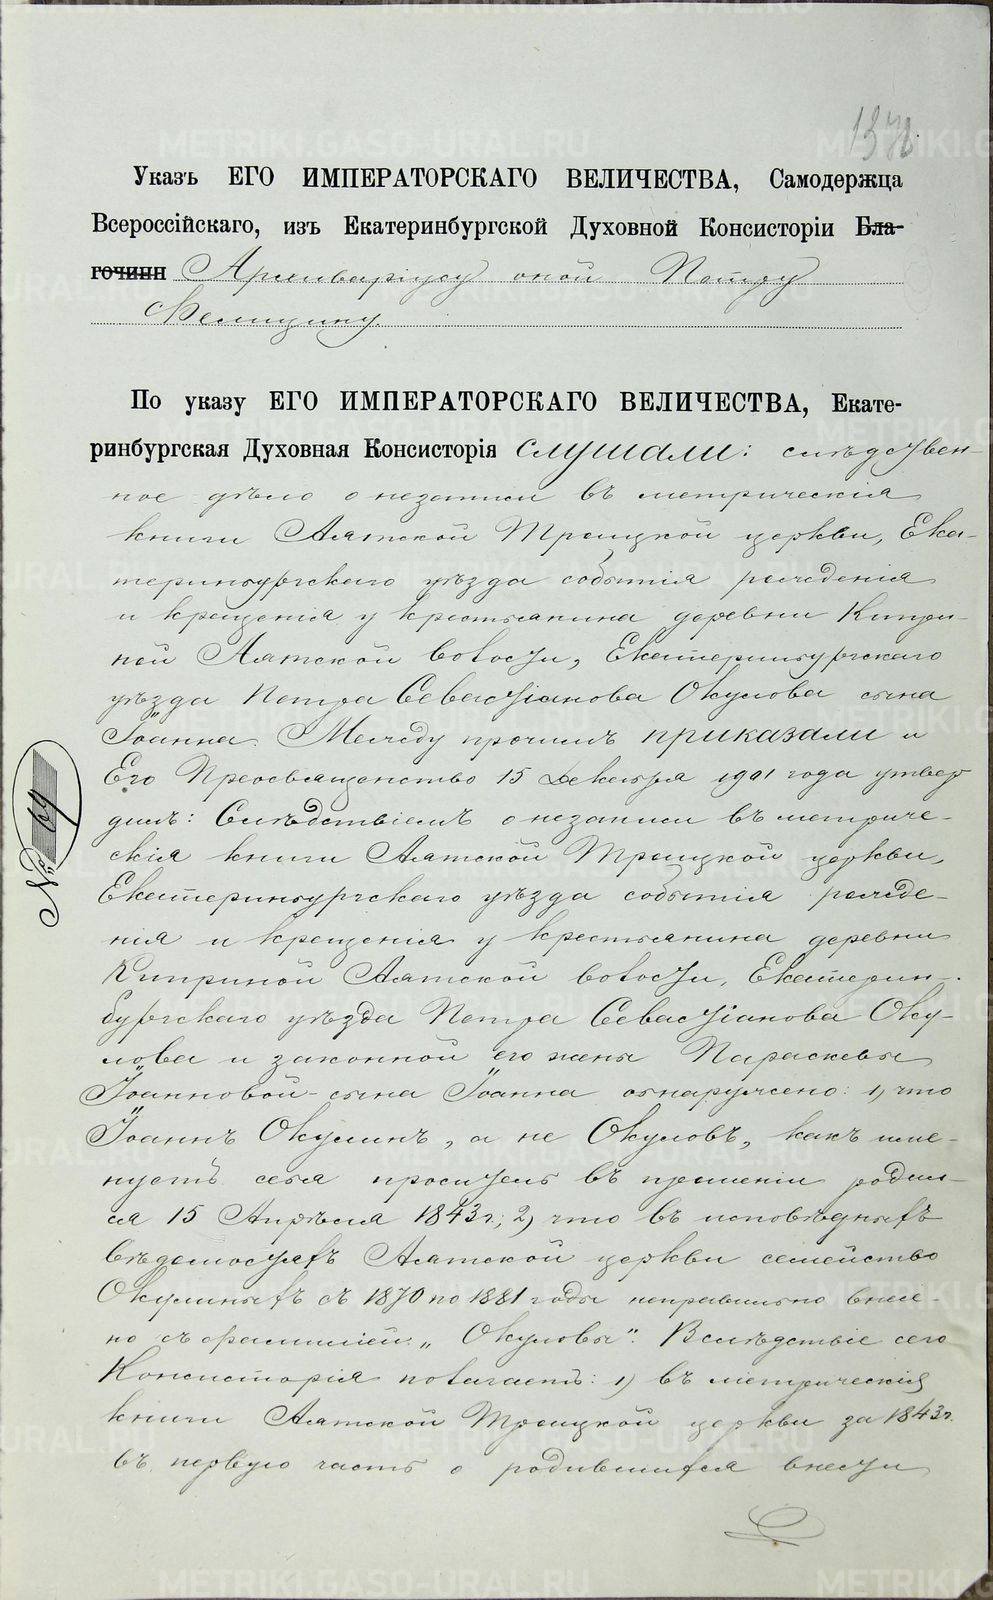 137
Указъ ЕГО ИМПЕРАТОРСКАГО ВЕЛИЧЕСТВА, Самодержца
Всероссійскаго, изъ Екатеринбургской Духовной Консисторіи Бла-
гочинн Архиваріусу оной Петру
По указу ЕГО ИМПЕРАТОРСКАГО ВЕЛИЧЕСТВА, Екате-
ринбургская Духовная Консисторія слушали: слѣдствен-
ное дѣло о незаписи въ метрическія
книги Аятской Троицкой церкви, Ека-
теринбургскаго уѣзда событія рожденія
и крещенія у крестьянина деревни Кипри-
ной Аятской волости, Екатеринбургскаго
уѣзда Петра Севастіанова Окулова сына
Іоанна. Между прочимъ приказали и
Его Преосвященство 15 Декабря 1901 года утвер
дилъ: Слѣдствіемъ о незаписи въ метриче-
скія книги Аятской Троицкой церкви,
Екатеринбургскаго уѣзда событія рожде-
нія и крещенія у крестьянина деревни
Киприной Аятской волости, Екатерин-
бургскаго уѣзда Петра Севастіанова Оку-
лова и законной его жены Параскевы
Іоанновой - сына Іоанна обнаружено: 1) что
Іоаннъ Окулинъ, а не Окуловъ, какъ име-
нуетъ себя проситель въ прошеніи родил-
ся 15 Апрѣля 1843 г.; 2) что въ исповѣдныхъ
вѣдомостяхъ Аятской церкви семейство
Окулиныхъ съ 1870 по 1881 годы неправильно внесе-
но съ фамиліей „Окуловы". Вслѣдствіе сего
Консисторія полагаетъ: 1) въ метрическія
книги Аятской Троицкой церкви за 1843 г.
въ первую часть о родившихся внести
№ 69
METRIKI.GASO-URAL.RU